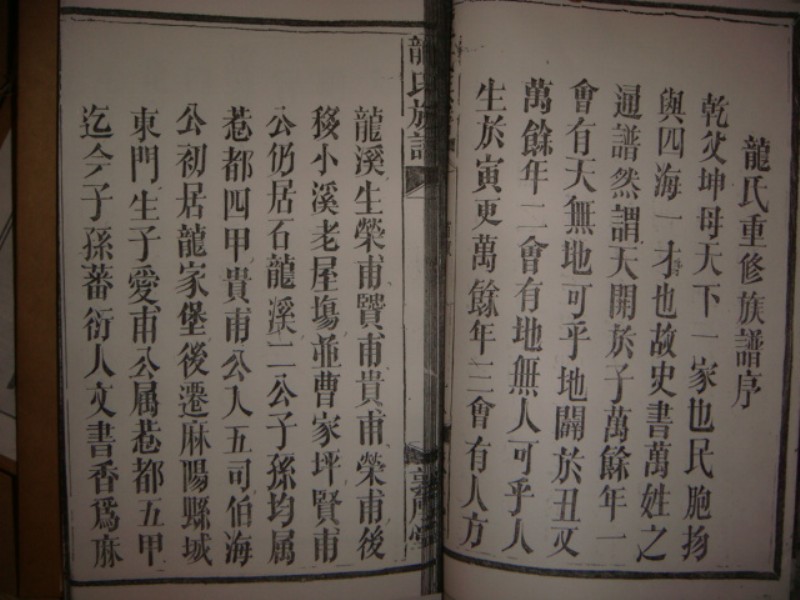 龍氏重修族譜序
乾父坤母天下一家也民胞物
與四海一才也故史書萬姓之
通譜然謂天開於子萬餘年一
會有天無地可乎地闢於丑又
萬餘年二會有地無人可乎人
生於寅更萬餘年三會有人方
龍氏族譜
龍溪生榮甫賢甫貴甫榮甫後
移小溪老屋塲並曹家坪賢甫
公仍居石龍溪二公子孫均属
惹都四甲貴甫公入五司伯海
公初居龍家堡後遷麻陽縣城
東門生子愛甫公属惹都五甲
迄今子孫蕃衍人文書香爲麻